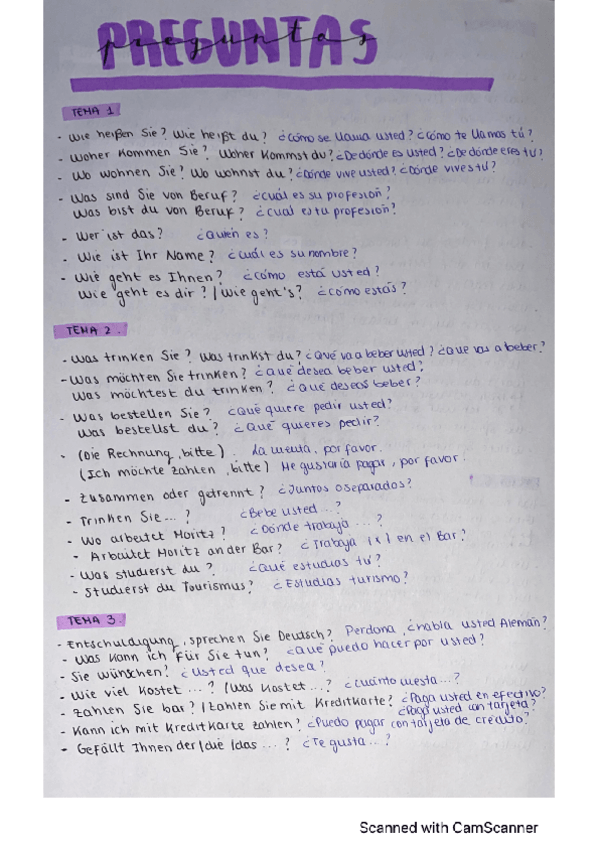 PREGUNTAS
preguntas
TEMA 1
- Wie heißen Sie? Wie heißt du? ¿Cómo se llama usted? ¿Cómo te llamas tú?
- Woher kommen Sie? Woher kommst du? ¿De dónde es usted? ¿De dónde eres tú?
- Wo wohnen Sie? Wo wohnst du? ¿Dónde vive usted? ¿Dónde vives tú?
- Was sind Sie von Beruf? ¿Cuál es su profesión?
Was bist du von Beruf? ¿Cuál es tu profesión?
- Wer ist das? ¿Quién es?
- Wie ist Ihr Name? ¿Cuál es su nombre?
- Wie geht es Ihnen? ¿Cómo está usted?
Wie geht es dir? / Wie geht's? ¿Cómo estás?
TEMA 2.
- Was trinken Sie? Was trinkst du? ¿Qué va a beber usted? ¿Que vas a beber?
- Was möchten Sie trinken? ¿Qué desea beber usted?
Was möchtest du trinken? ¿Qué deseas beber?
- Was bestellen Sie? ¿Qué quiere pedir usted?
Was bestellst du? ¿Qué quieres pedir?
- (Die Rechnung, bitte). La cuenta, por favor.
(Ich möchte zahlen, bitte) Me gustaría pagar, por favor.
- Zusammen oder getrennt? ¿Juntos o separados?
- Trinken Sie...? ¿Bebe usted...?
- Wo arbeitet Moritz? ¿Dónde trabaja ...?
- Arbeitet Moritz an der Bar? ¿Trabaja en el Bar?
- Was studierst du? ¿Qué estudias tú?
- Studierst du Tourismus? ¿Estudias turismo?
TEMA 3.
- Entschuldigung, sprechen Sie Deutsch? Perdona, ¿habla usted Alemán?
- Was kann ich für Sie tun? ¿Qué puedo hacer por usted?
- Sie wünschen? ¿Usted que desea?
- Wie viel kostet ...? / Was kostet ...? ¿Cuánto cuesta...?
- Zahlen Sie bar? / Zahlen Sie mit Kreditkarte? ¿Paga usted en efectivo?
¿Paga usted con tarjeta?
- Kann ich mit Kreditkarte zahlen? ¿Puedo pagar con tarjeta de crédito?
- Gefällt Ihnen der / die / das ...? ¿Te gusta...?
Scanned with CamScanner